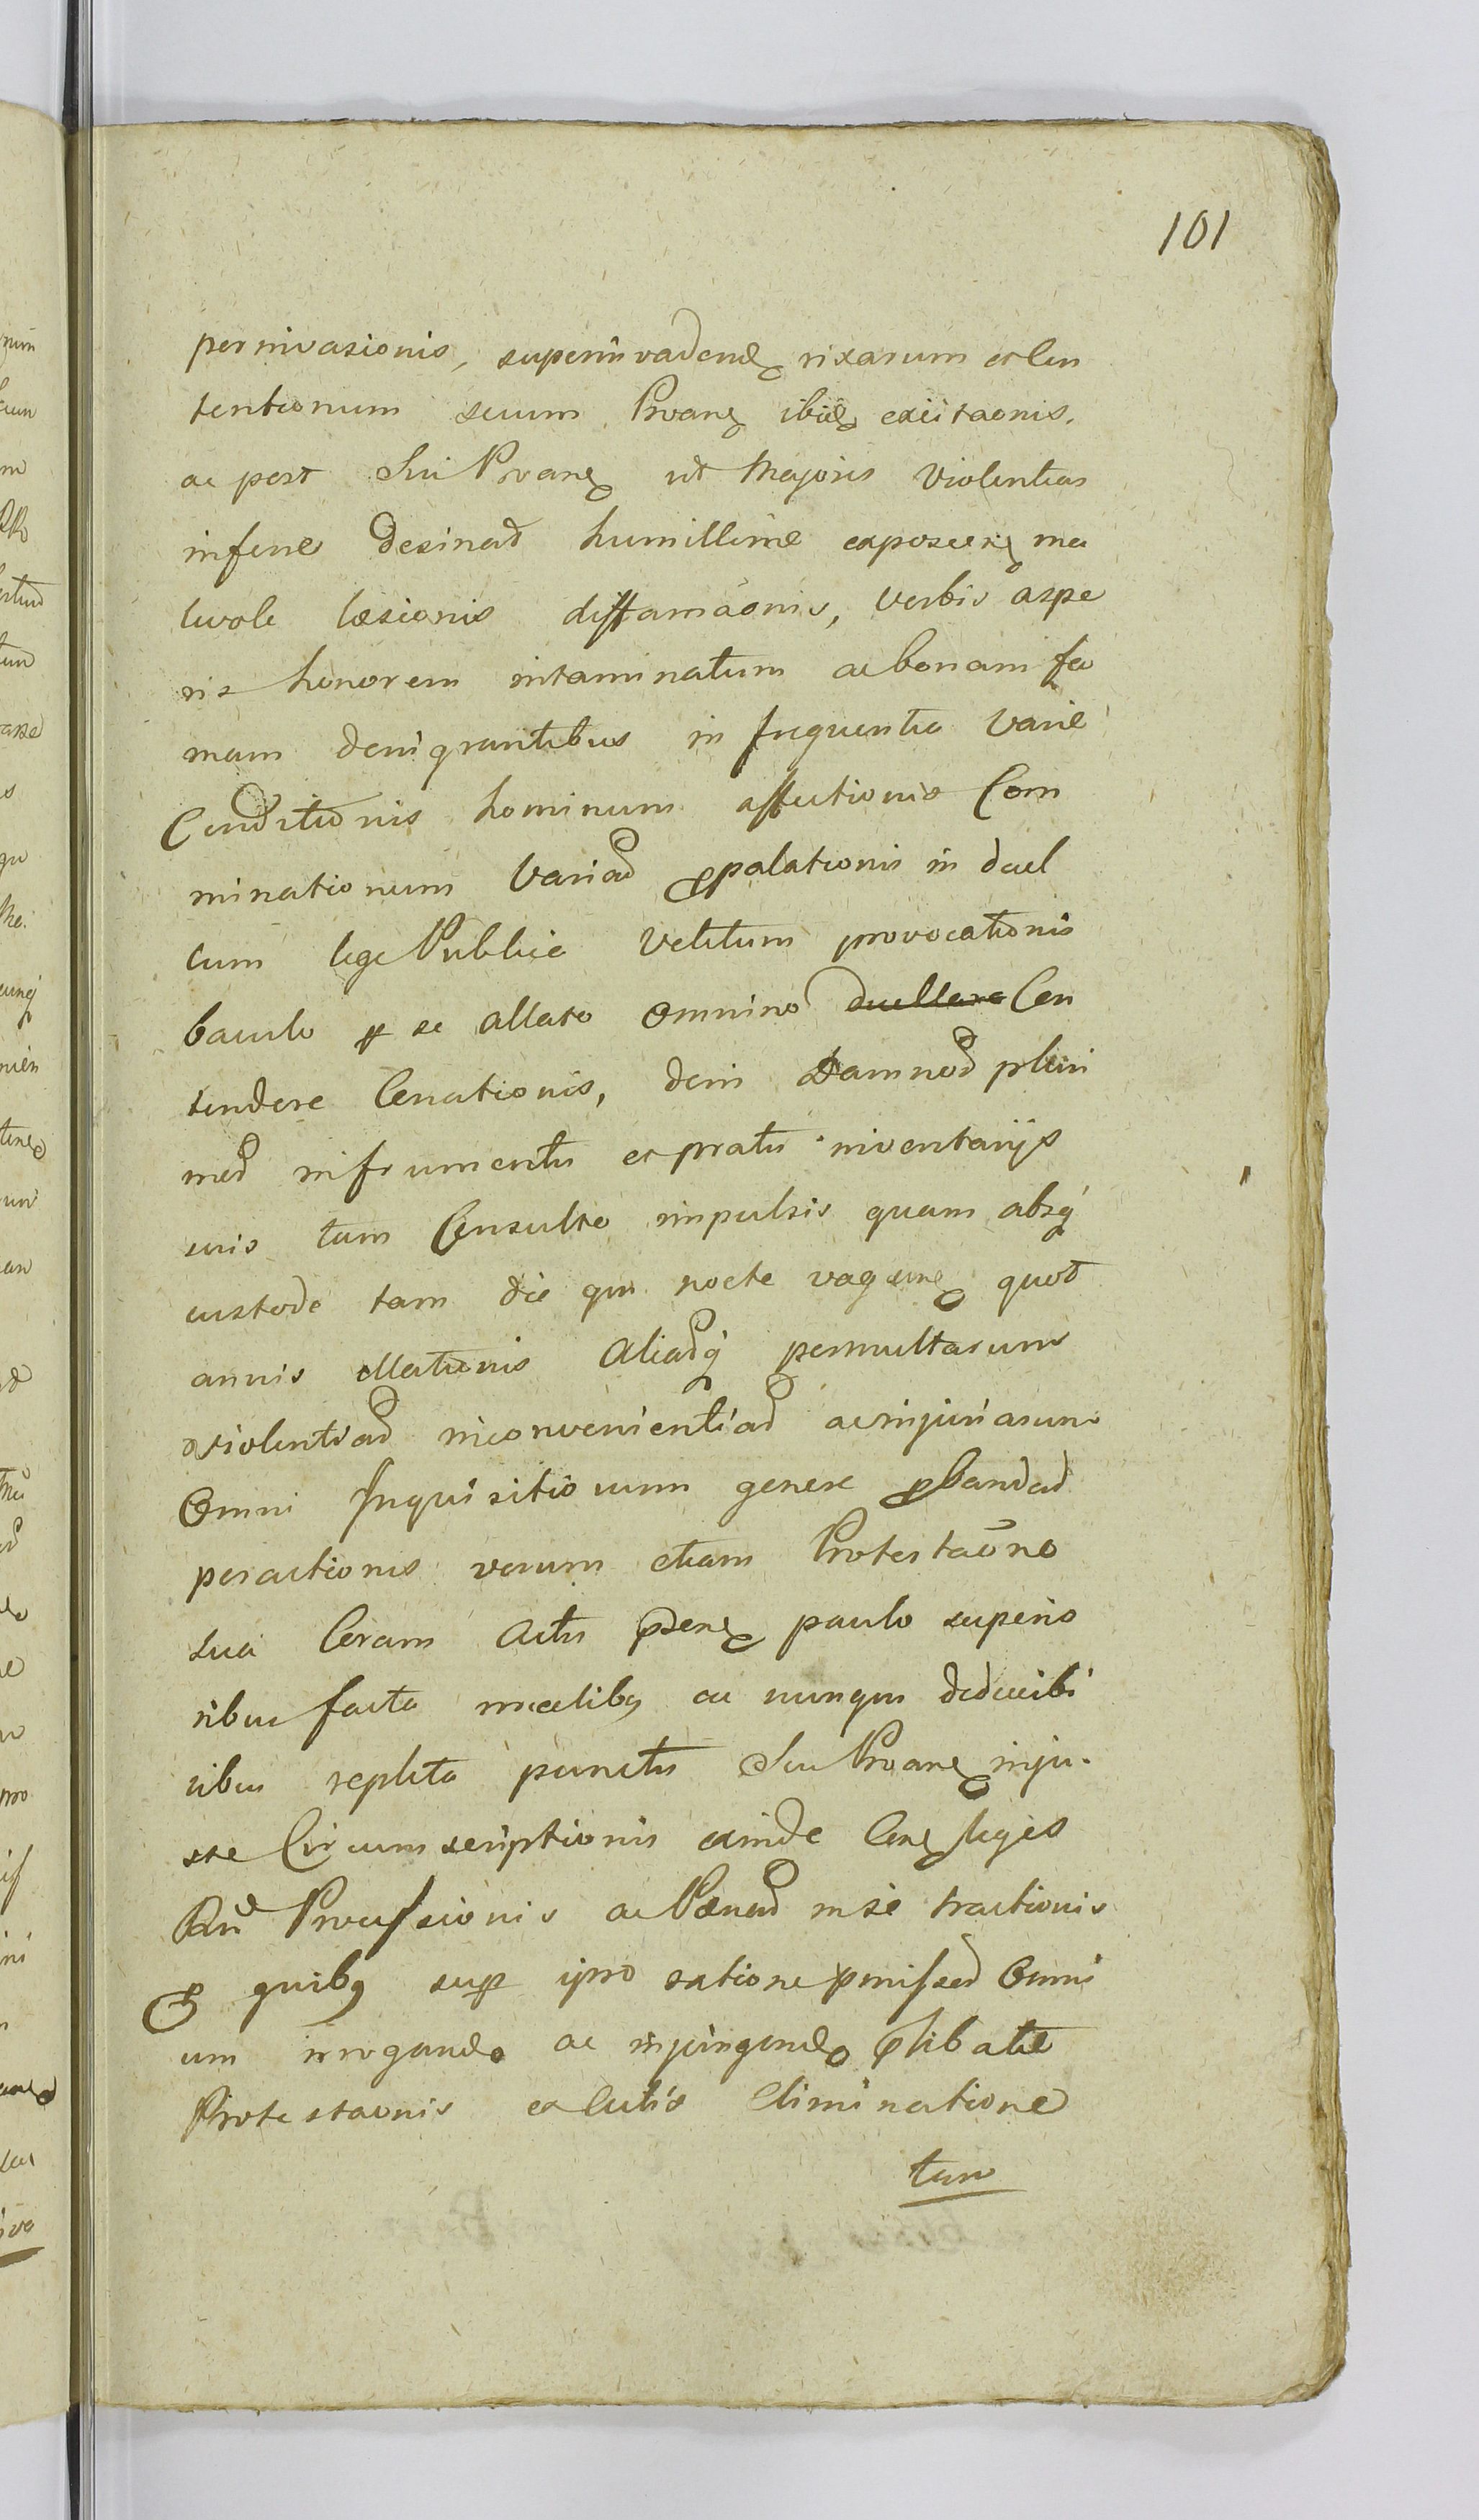 101
perinvasionis, superinvadenę rixarum et Con
tentionum secum Proanę ibiđę exiitaonis.
ac post Sui Proanę ut Majoris violentias
inferre desinat humillime exposcenę ma
livole læsionis diffamaonis, verbis aspe
ris honorem intaminatum ac bonam fa
mam denigrantibus in frequentia variæ
Conditionis hominum affectionis Com
minationum variaȓ ꝓpalationis in duel
lum lege Publica vetitum provocationis
baculo ꝑ se allato omnino duellare Con
tendere Conationis, dein damnoȓ pluri
moȓ in frumentis et pratis inventarijs
suis tam Consulto impulsis quam absq́
custode tam die qm nocte vagaunę quot
annis illationis aliaȓq́ permultarum
violentiaȓ inconvenientiaȓ ac injuriarum
Omni Inquisitionum genere ꝓbandaȓ
peractionis verum etiam Protestaōne
sua Coram Actis ꝓsenę paulo superio
ribus facta realibȝ ac nunqm deducibi
libus repleta punctis Sui Proanę inju
ste Circumscriptionis exinde Conę Leges
Processionis ac Pœnaȓ in se tractionis
quibȝ suꝑ ipso ratione pmissoȓ Omni
um irrogandę ac injungendę ꝓlibatæ
Protestaonis et Litis Eliminatione
tum